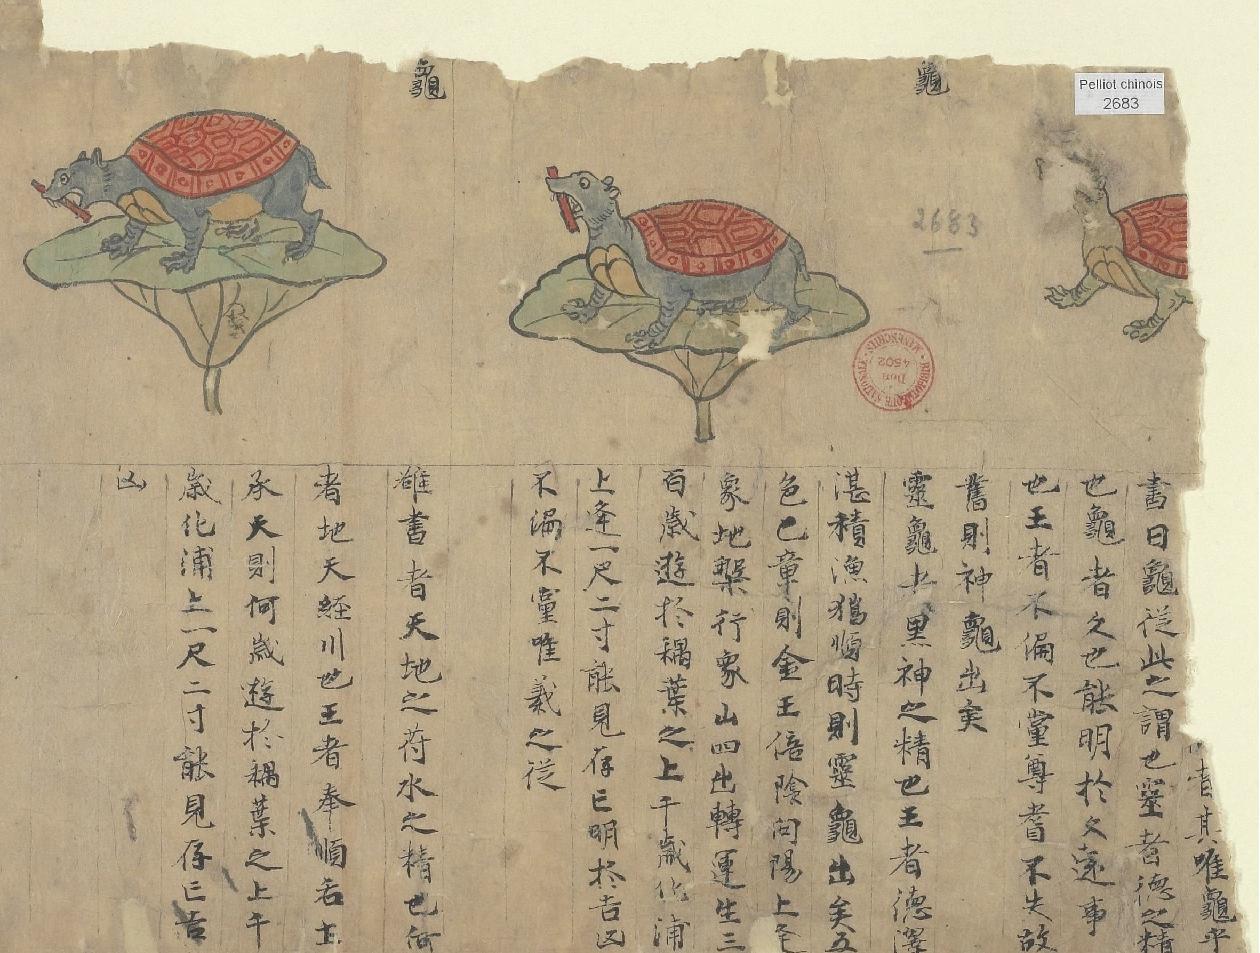 龜
龜
Pelliot chinois
2683
2683
BIBLIOTHÈQUE NATIONALE MANUSCRITS
Don
4502
者其唯龜乎
書曰龜従此之謂也靈者德之精
也龜者久也能明於久遠事
也王者不偏不黨尊耆不失故
舊則神龜出矣
靈龜者黒神之精也王者德澤
湛積漁猟順時則靈龜出矣五
色已章則金王倍陰向陽上
象地槃行象山四出轉運生三
百歲遊於耦葉之上千歲化浦
上逢一尺二寸能見存亡明於吉凶
不漏不黨唯義之従
雒書者天地之苻水之精也何
者地天経川也王者奉順君
承天則何歲遊於耦葉之上千
歲化浦上一尺二寸能見存亡吉
凶